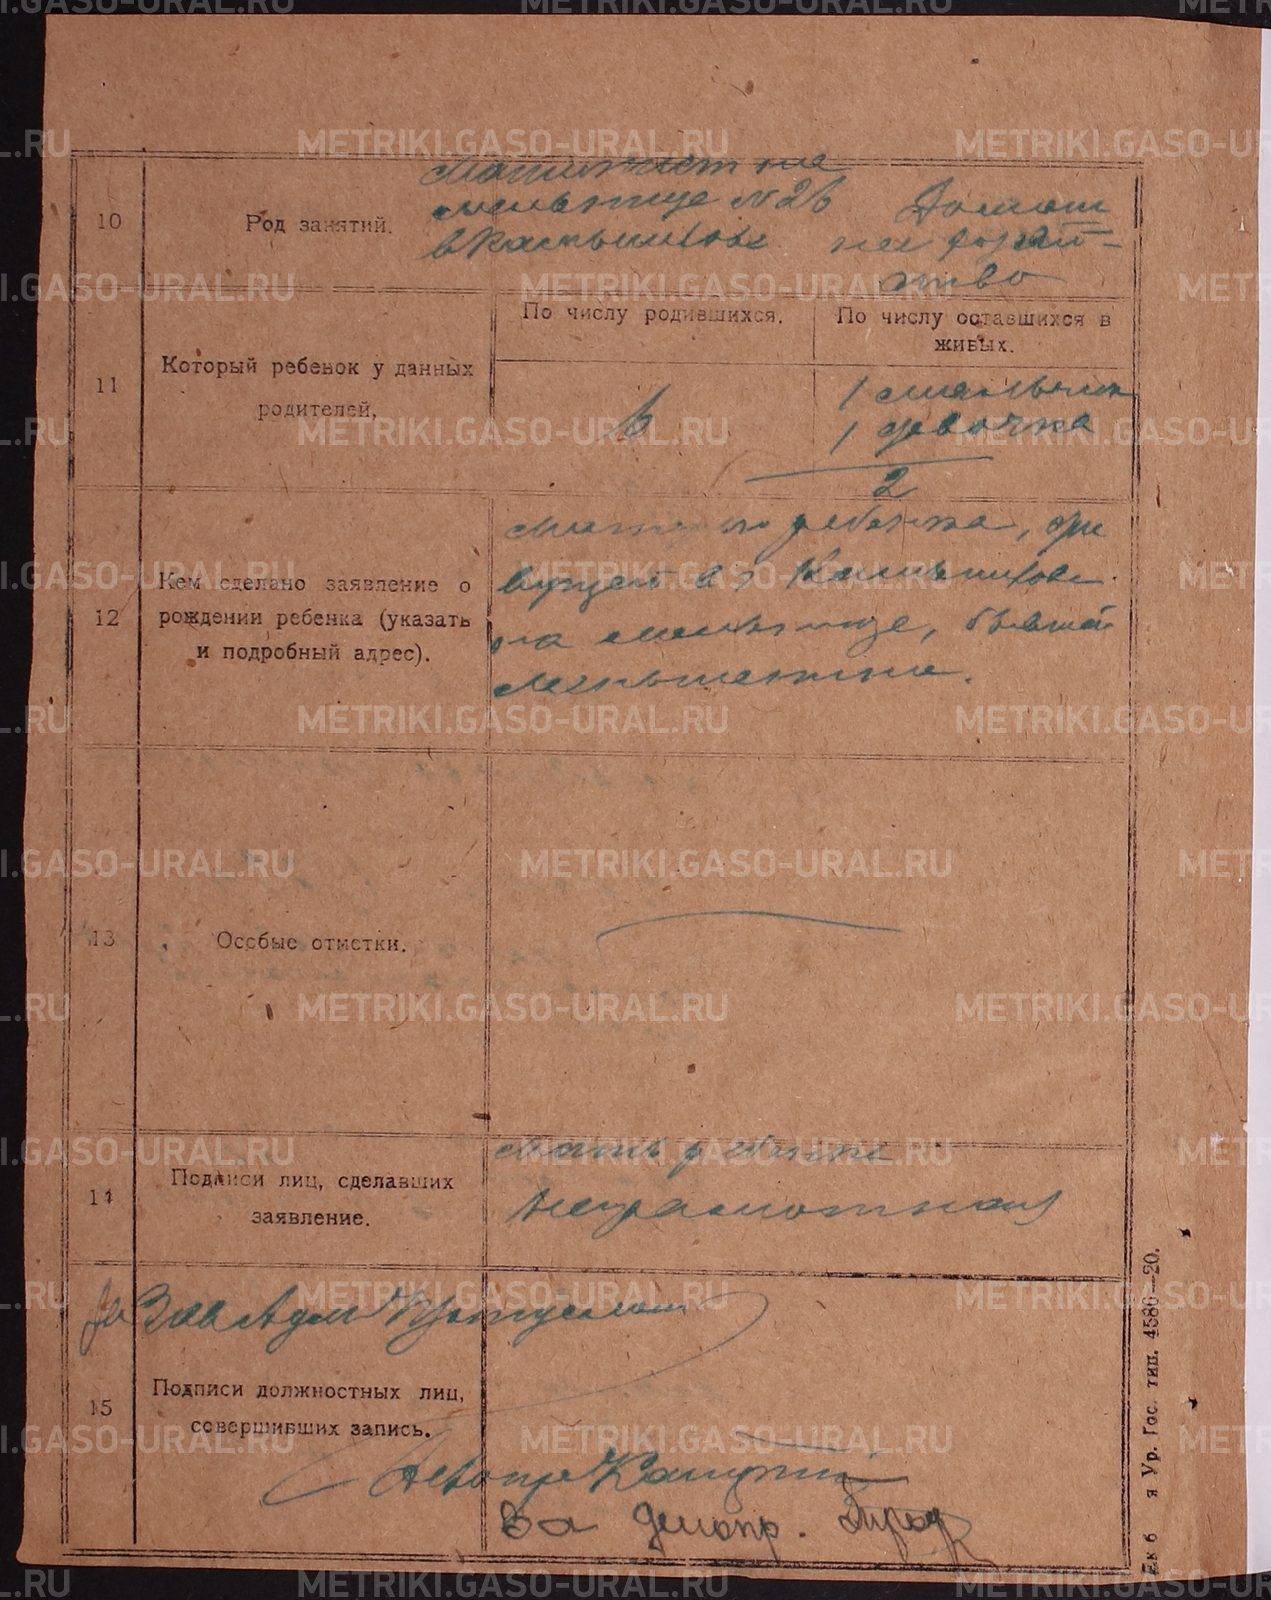 METRIKI.GASO-URAL.RU
10
Род занятий.
Машинист на
мельнице №26
в Камышлове
Домаш
нее хозяй-
ство
11
Который ребенок у данных
родителей,
По числу родившихся.
По числу оставшихся в
живых.
6
1 мальчик
1 девочка
2
12
Кем сделано заявление о
рождении ребенка (указать
и подробный адрес).
ребенка, жи
вущей в г Камышлове
на мельнице, бывшей
13
Особые отметки.
14
Подписи лиц, сделавших
заявление.
Мать ребенка
неграмотная
За Зав
15
Подписи должностных лиц,
совершивших запись.
Делопр
За делопр.
я Ур. Гос. тип. 4586—20.